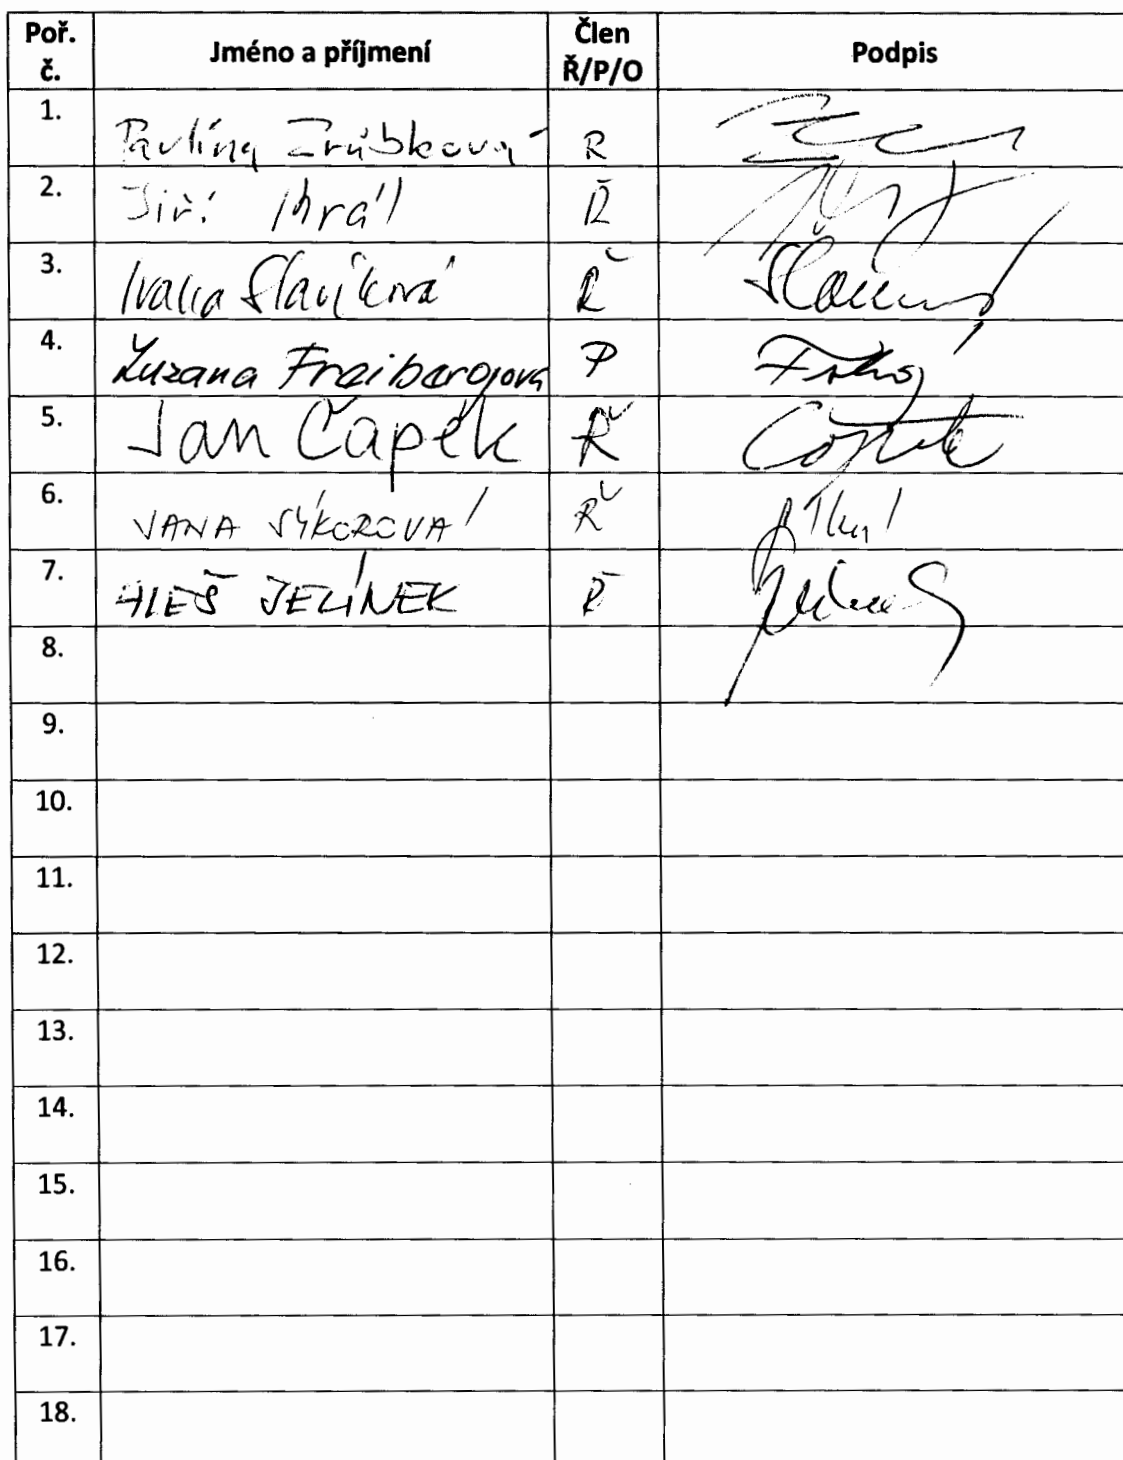 Poř. č. Jméno a příjmení Člen Ř/P/O Podpis
1. Pavlína Zrůbková R
2. Jiří Král Ř
3. Ivana Slavíková Ř
4. Zuzana Freibergová P
5. Jan Čapek Ř Čapek
6. JANA SÝKOROVÁ Ř
7. ALEŠ JELÍNEK Ř
8.
9.
10.
11.
12.
13.
14.
15.
16.
17.
18.